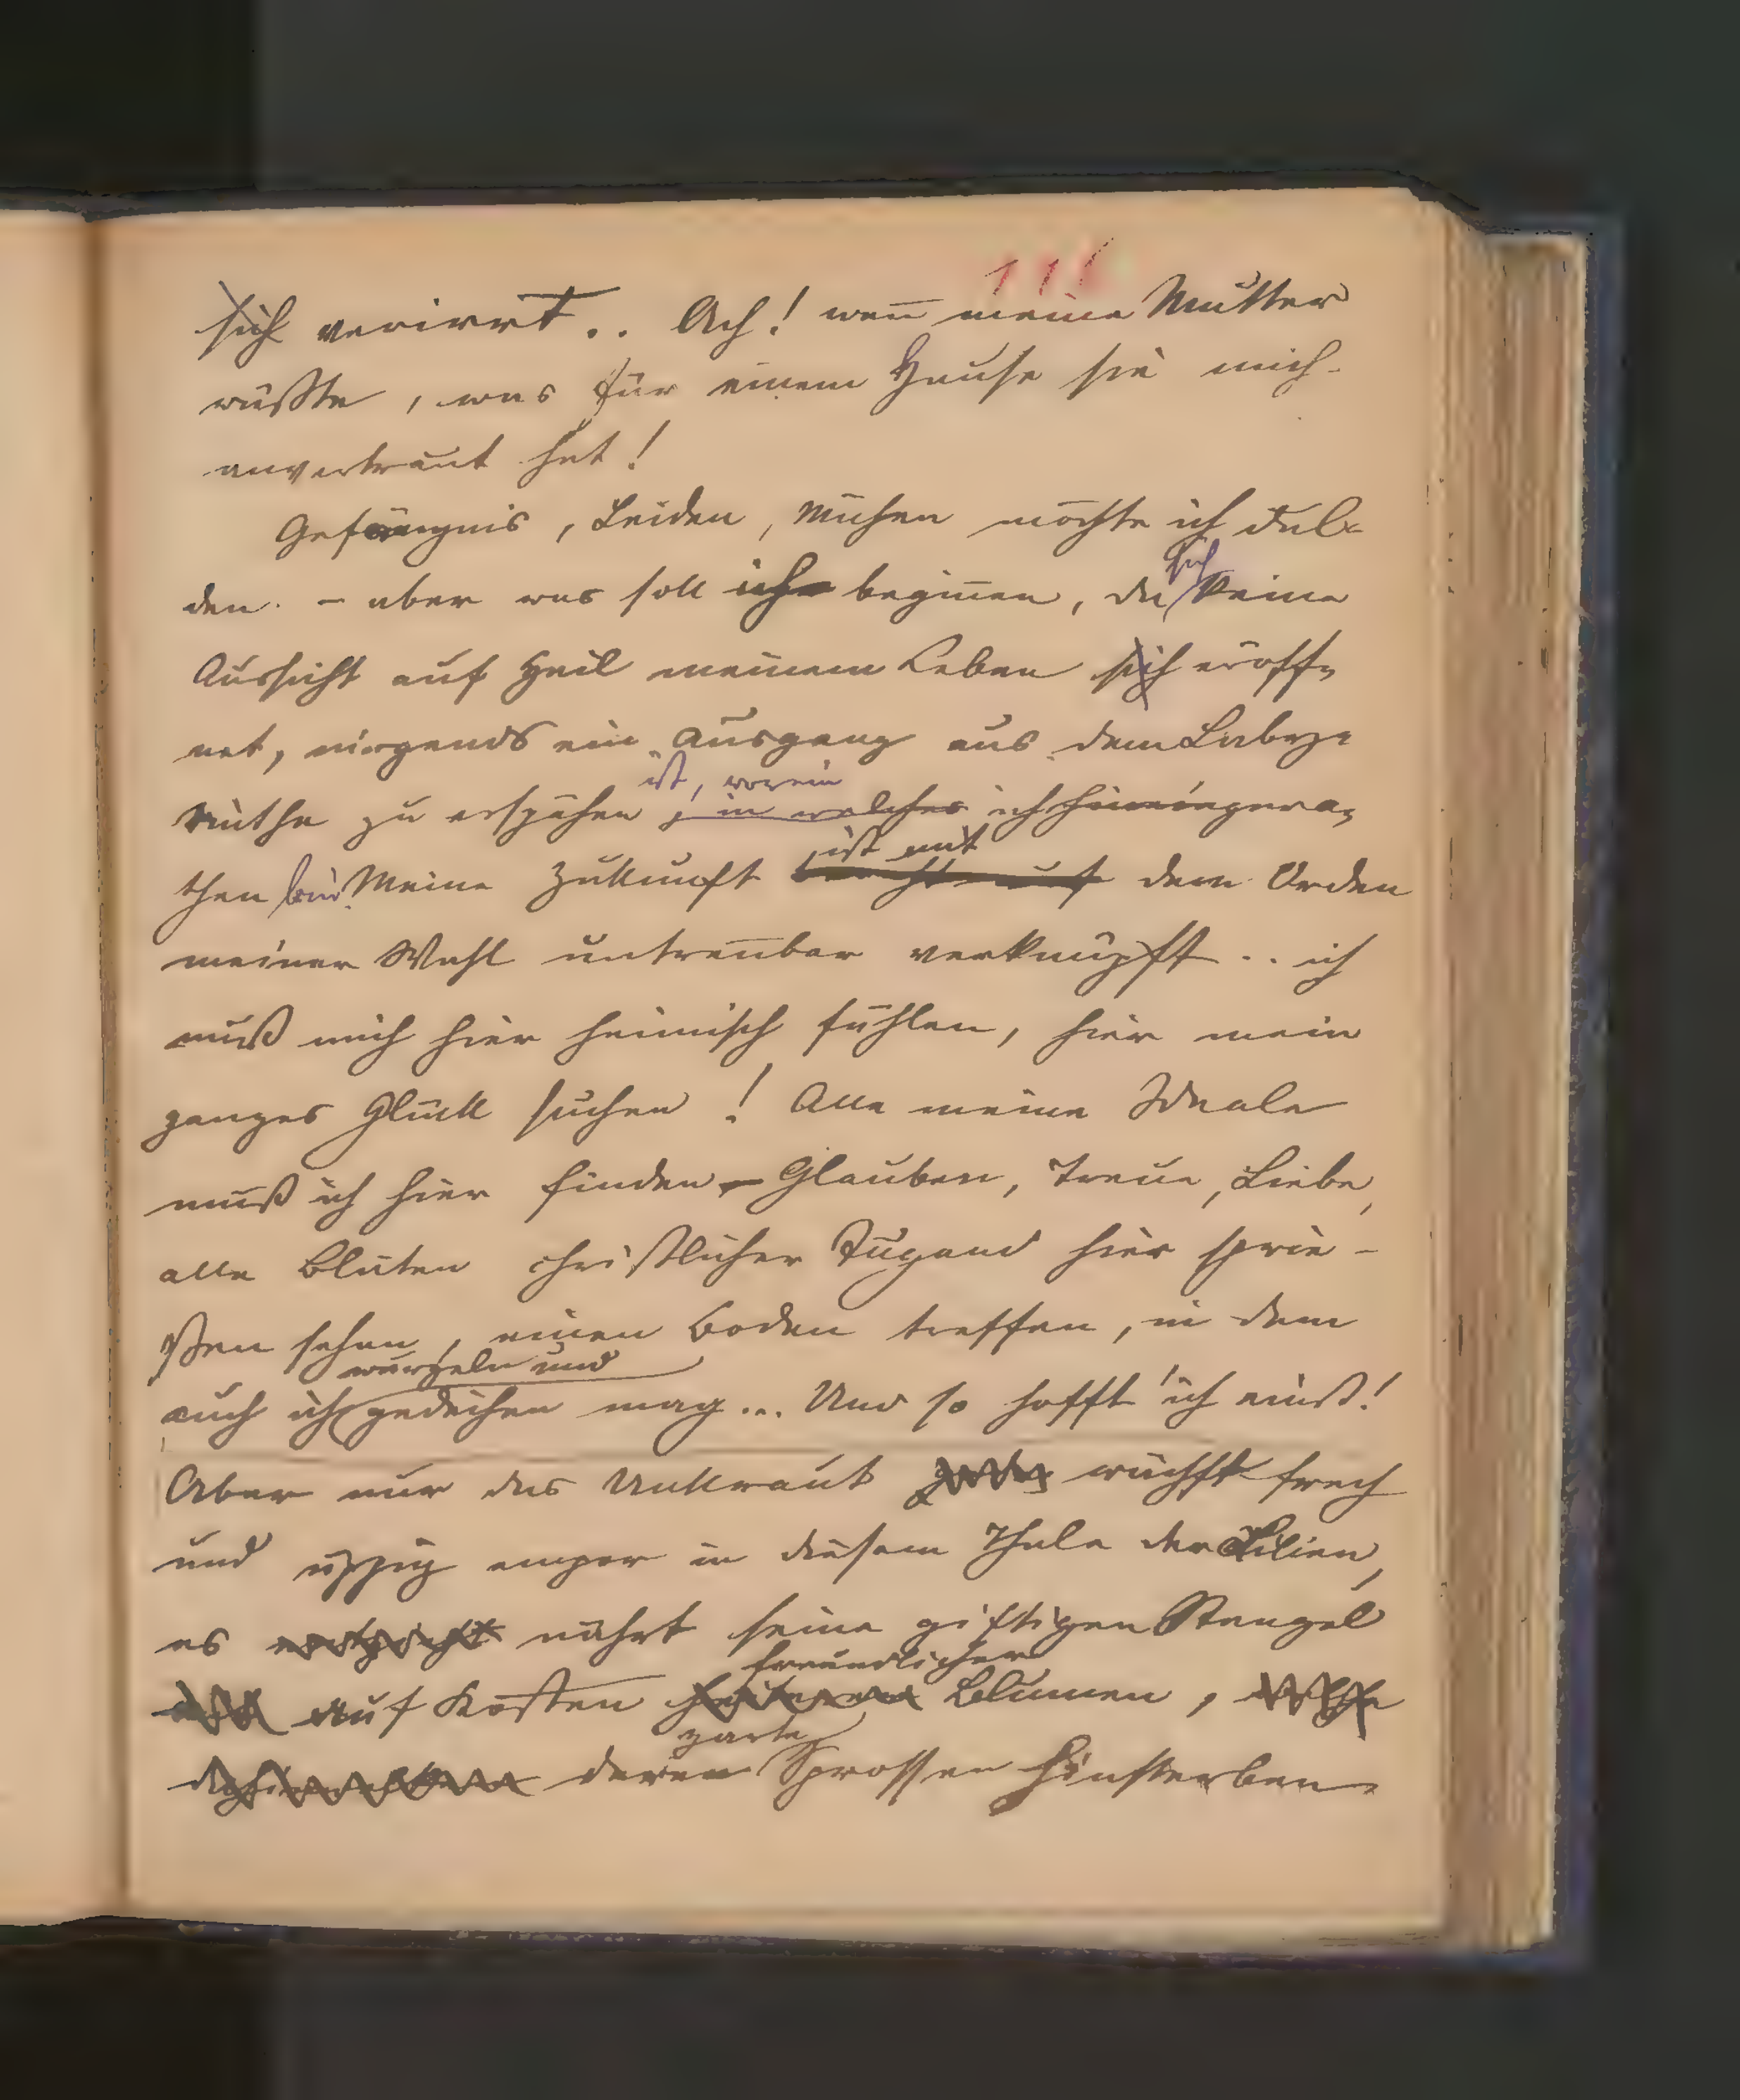 111
sich verirrt.. Ach! wen̄ meine Mutter
wüßte, was für einem Hause sie mich
anvertraut hat!
Gefängnis, Leiden, Mühen möchte ich dul-
den. – aber was soll ich begin̄en, da sich keine
Aussicht auf Heil meinem Leben sich eröff-
net, nirgends ein Ausgang aus dem Laby-
ist, worein
rinthe zu erspähen, in welches ich hineingera-
ist mit
then bin. Meine Zukunft beruht auf dem Orden
meiner Wahl untren̄bar verknüpft .. ich
muß mich hier heimisch fühlen, hier mein
ganzes Glück suchen! Alle meine Ideale
muß ich hier finden – Glauben, Treue, Liebe,
alle Blüten christlicher Tugend hier sprie-
ßen sehen, einen Boden treffen, in dem
wurzeln und
auch ich gedeihen mag... Und so hofft' ich einst!
Aber nur das Unkraut wächst frech
und üppig empor in diesem Thale der Lilien,
es nährt seine giftigen Stengel
freundlicher
auf Kosten Blumen,
zarte
deren Sprossen hinsterben.